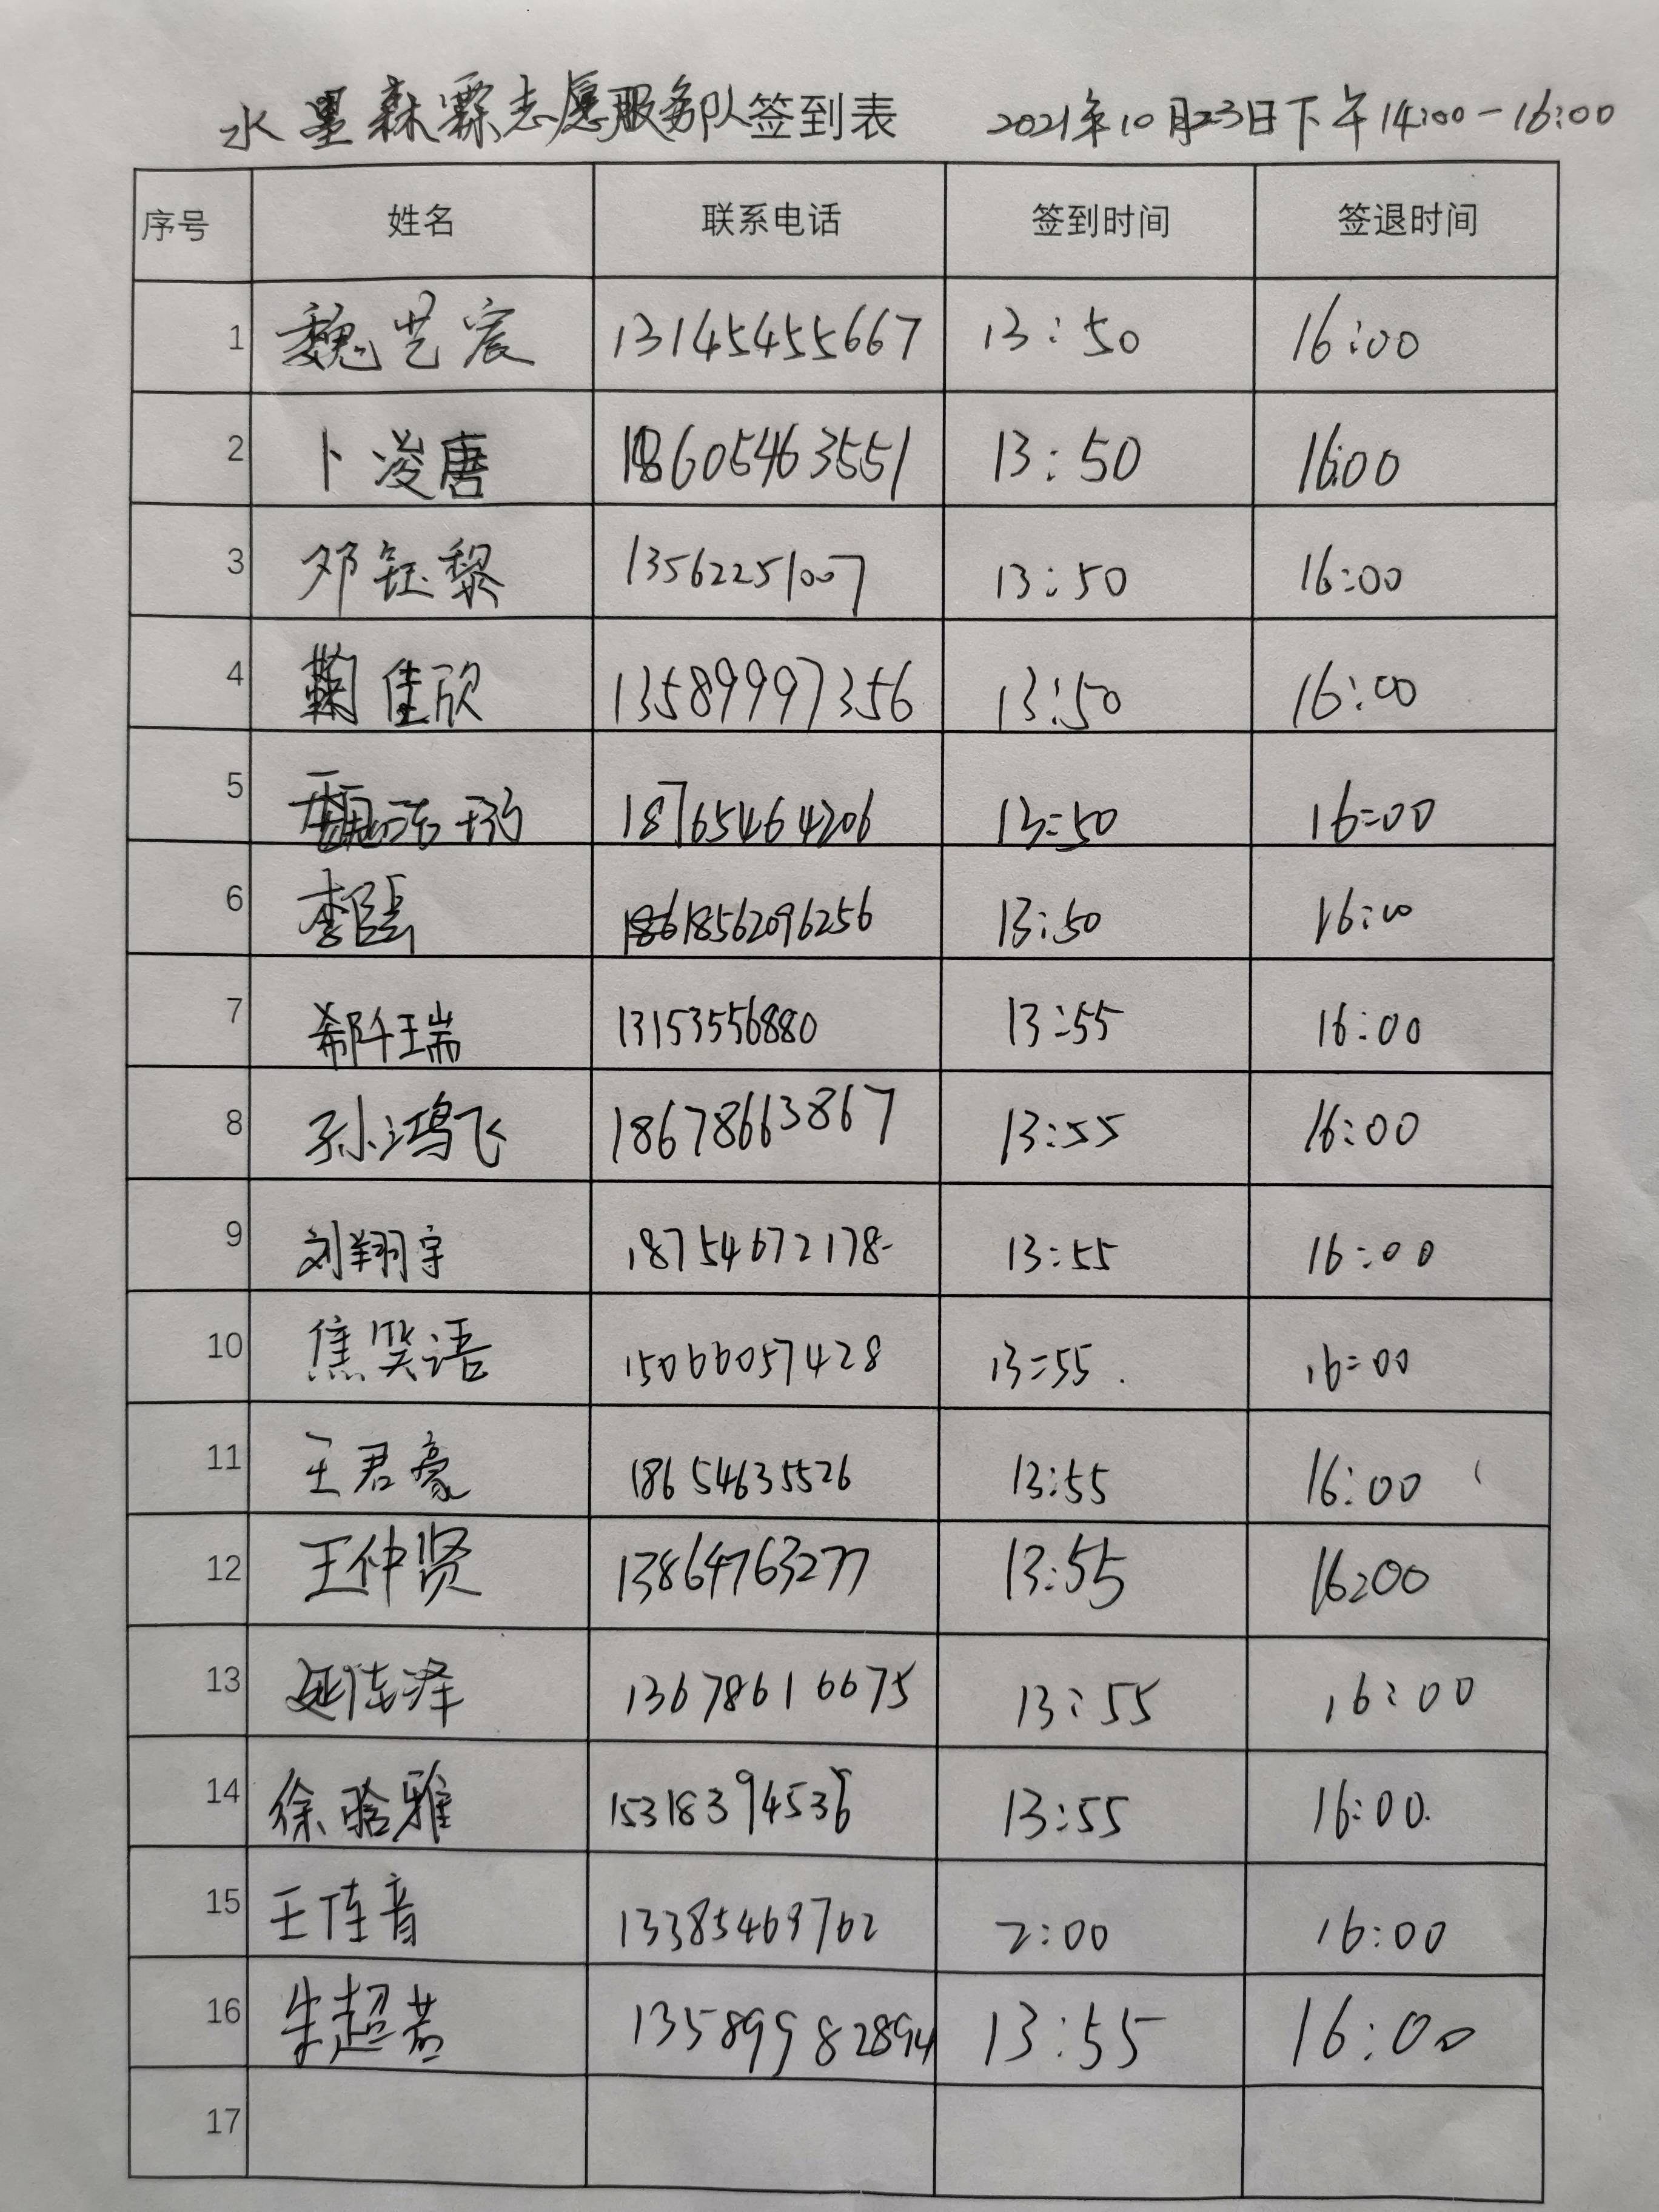 水墨森霖志愿服务队签到表 2021年10月23日下午14:00-16:00
序号 姓名 联系电话 签到时间 签退时间
1 魏艺宸 13145455667 13:50 16:00
2 卜凌唐 18605463551 13:50 16:00
3 邓钰黎 13562251007 13:50 16:00
4 鞠佳欣 13589997356 13:50 16:00
5 18765464206 13:50 16:00
6 18562096256 13:50 16:00
7 郗千瑞 13153556880 13:55 16:00
8 孙鸿飞 18678663867 13:55 16:00
9 刘翔宇 18754672178 13:55 16:00
10 焦笑语 15066057428 13:55 16:00
11 王君豪 18654635526 13:55 16:00
12 王仲贤 13864763277 13:55 16:00
13 13678616675 13:55 16:00
14 徐晗雅 15318394536 13:55 16:00.
15 王佳音 13385469762 2:00 16:00
16 朱超若 13589982894 13:55 16:00
17